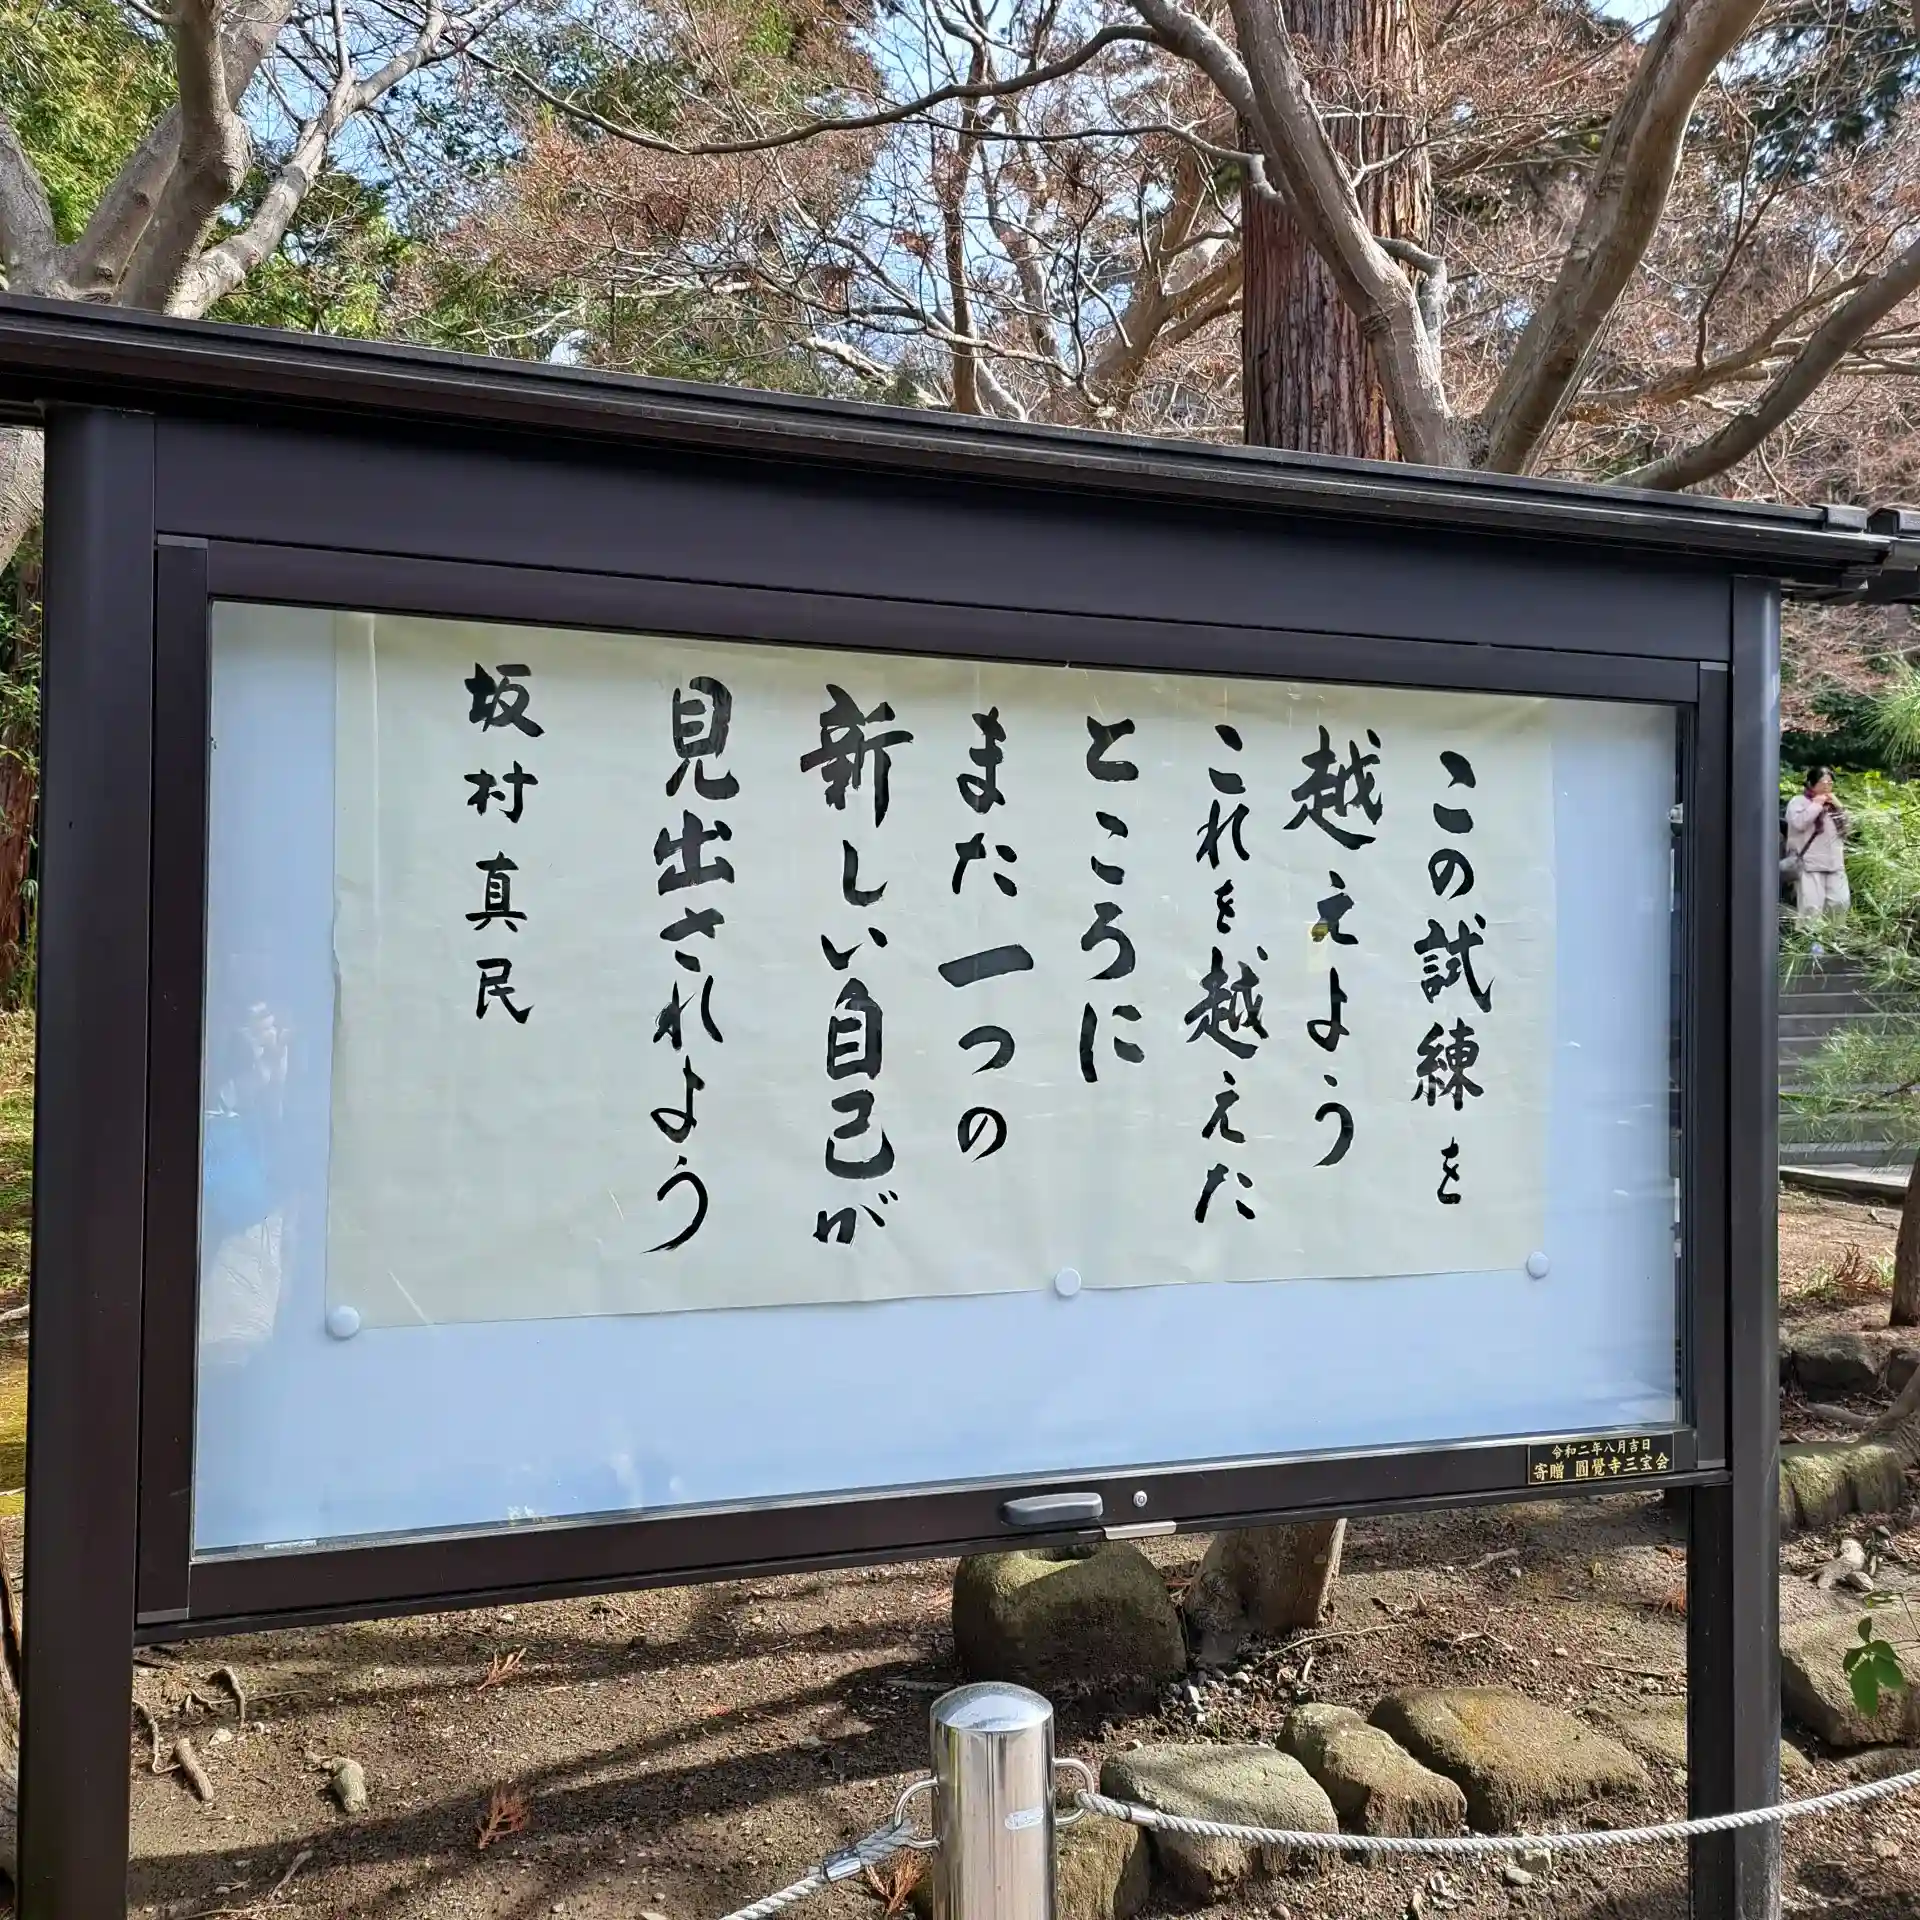 この試練を
越えよう
これを越えた
ところに
また一つの
新しい自己が
見出されよう
坂村真民
令和二年八月吉日
寄贈 圓覺寺三宝会